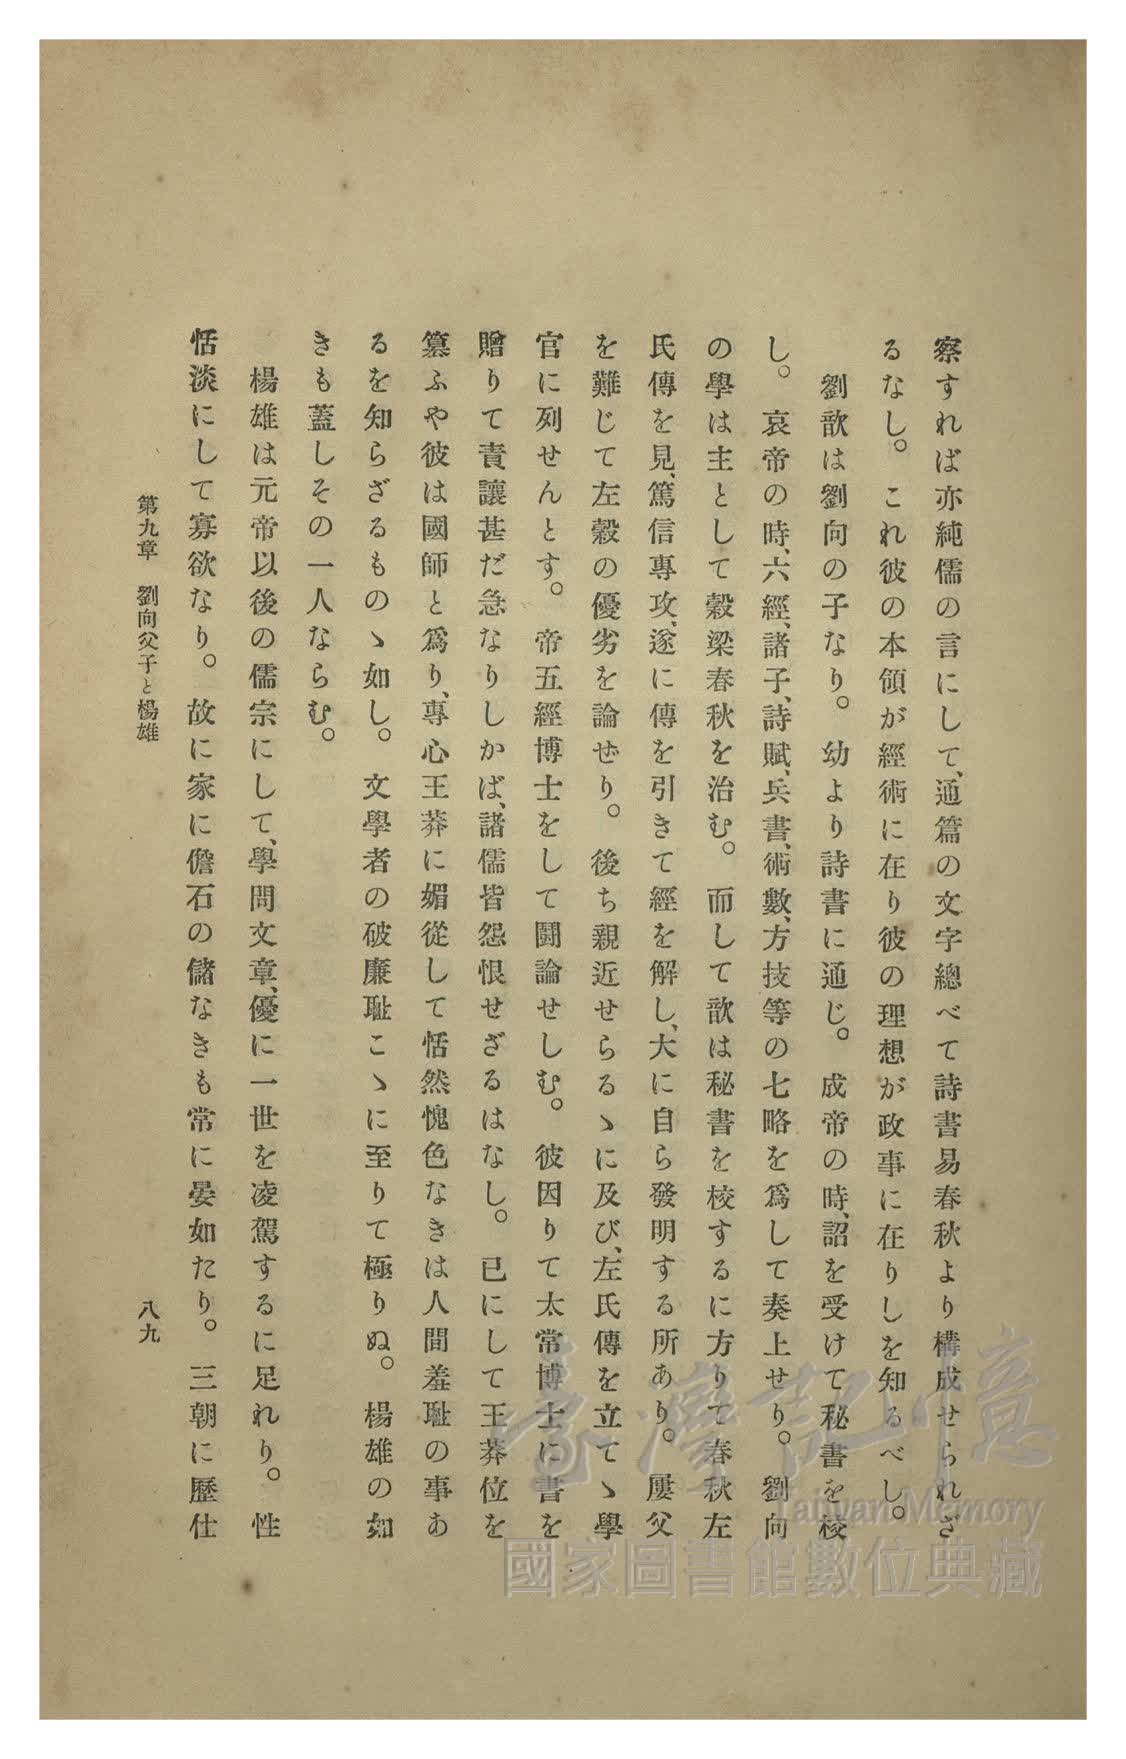 察すれば亦純儒の言にして、通篇の文字總べて詩書易春秋より構成せられざ
るなし。これ彼の本領が經術に在り彼の理想が政事に在りしを知るべし。
劉歆は劉向の子なり。幼より詩書に通じ。成帝の時、詔を受けて秘書を校
し。哀帝の時、六經、諸子、詩賦、兵書、術數、方技等の七略を爲して奏上せり。劉向
の學は主として穀梁春秋を治む。而して歆は秘書を校するに方りて春秋左
氏傳を見、篤信專攻、遂に傳を引きて經を解し、大に自ら發明する所あり。屢父
を難じて左穀の優劣を論ぜり。後ち親近せらるゝに及び、左氏傳を立てゝ學
官に列せんとす。帝五經博士をして鬪論せしむ。彼因りて太常博士に書を
贈りて責讓甚だ急なりしかば、諸儒皆怨恨せざるはなし。已にして王莽位を
簒ふや彼は國師と爲り、專心王莽に媚從して恬然愧色なきは人間羞耻の事あ
るを知らざるものゝ如し。文學者の破廉耻こゝに至りて極りぬ。楊雄の如
きも蓋しその一人ならむ。
楊雄は元帝以後の儒宗にして、學問文章、優に一世を凌駕するに足れり。性
恬淡にして寡欲なり。故に家に儋石の儲なきも常に晏如たり。三朝に歷仕
第九章　劉向父子と楊雄
八九
臺灣記憶
Taiwan Memory
國家圖書館數位典藏